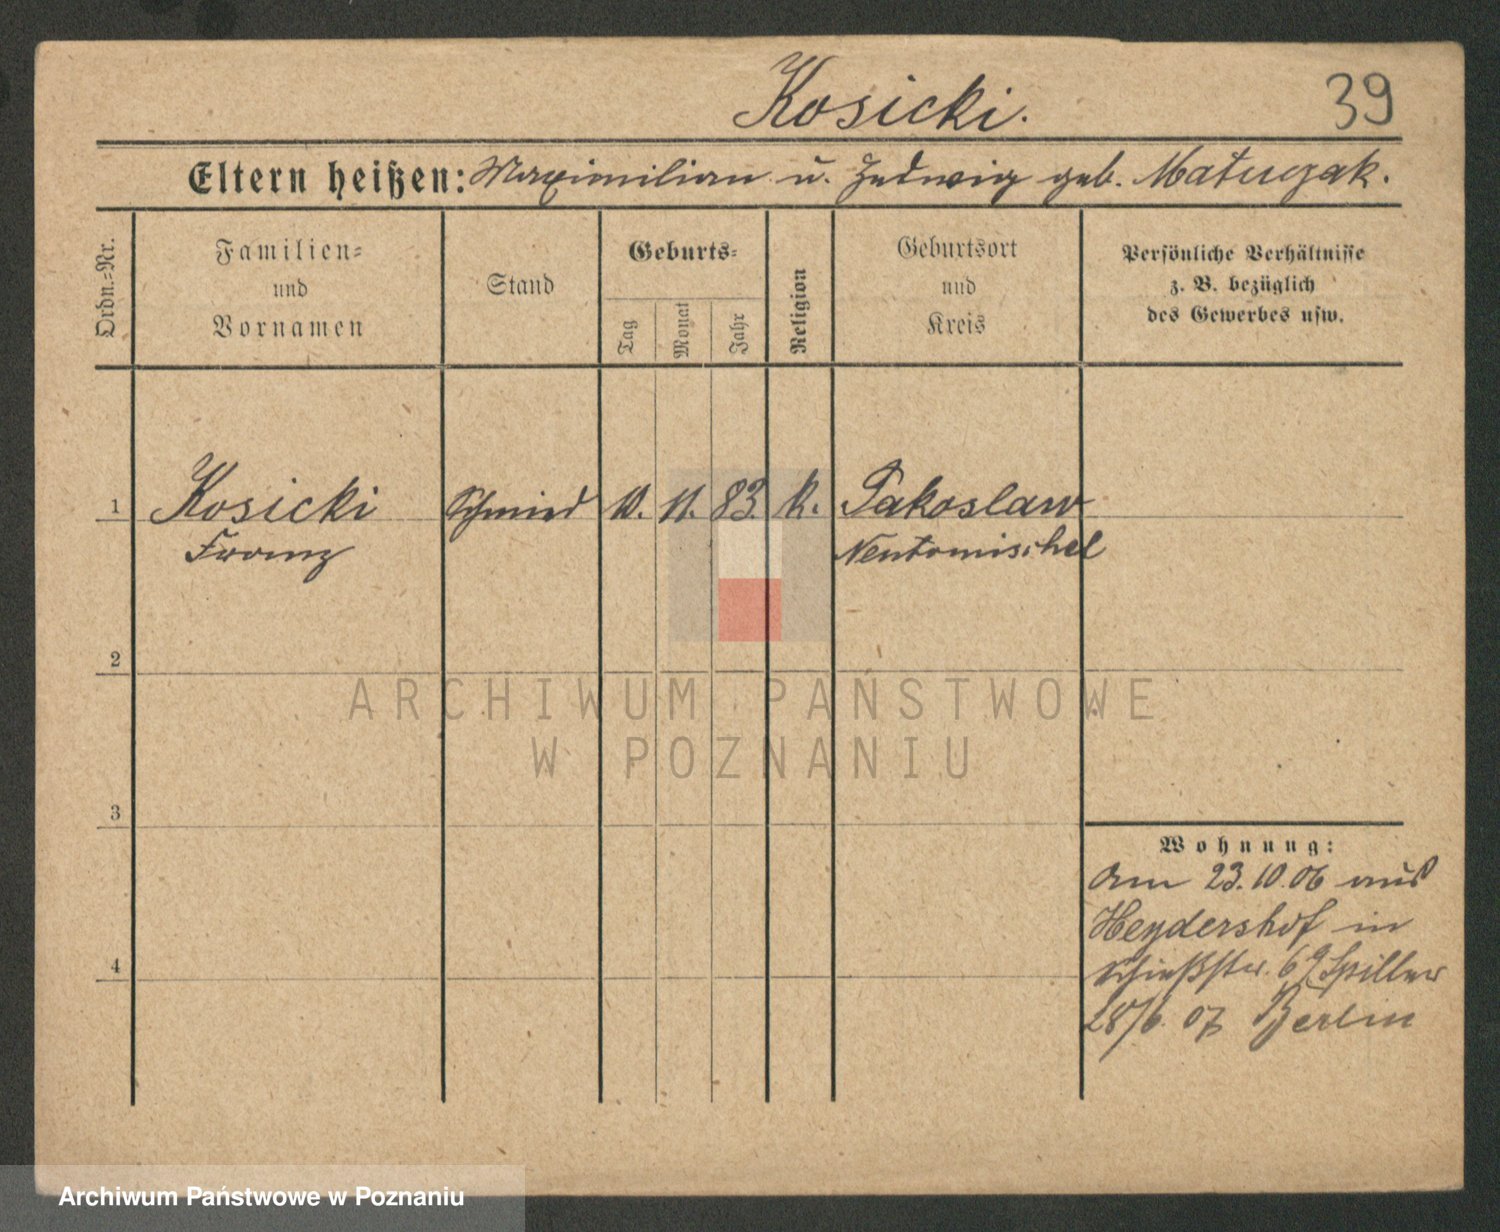 Kosicki.
39
Eltern heißen: Maximilian u. Hedwig geb. Matuczak.
Ordn.-Nr.
Familien-
und
Vornamen
Stand
Geburts-
Tag
Monat
Jahr
Religion
Geburtsort
und
Kreis
Persönliche Verhältnisse
z. B. bezüglich
des Gewerbes usw.
1 Kosicki Schmied 10. 11. 83. k. Pakoslaw
Franz Neutomischel
2
3
4
Wohnung:
Am 23.10.06 aus
Heydershof in
Schießstr. 6 Spiller
28/6. 07 Berlin
ARCHIWUM PAŃSTWOWE
W POZNANIU
Archiwum Państwowe w Poznaniu